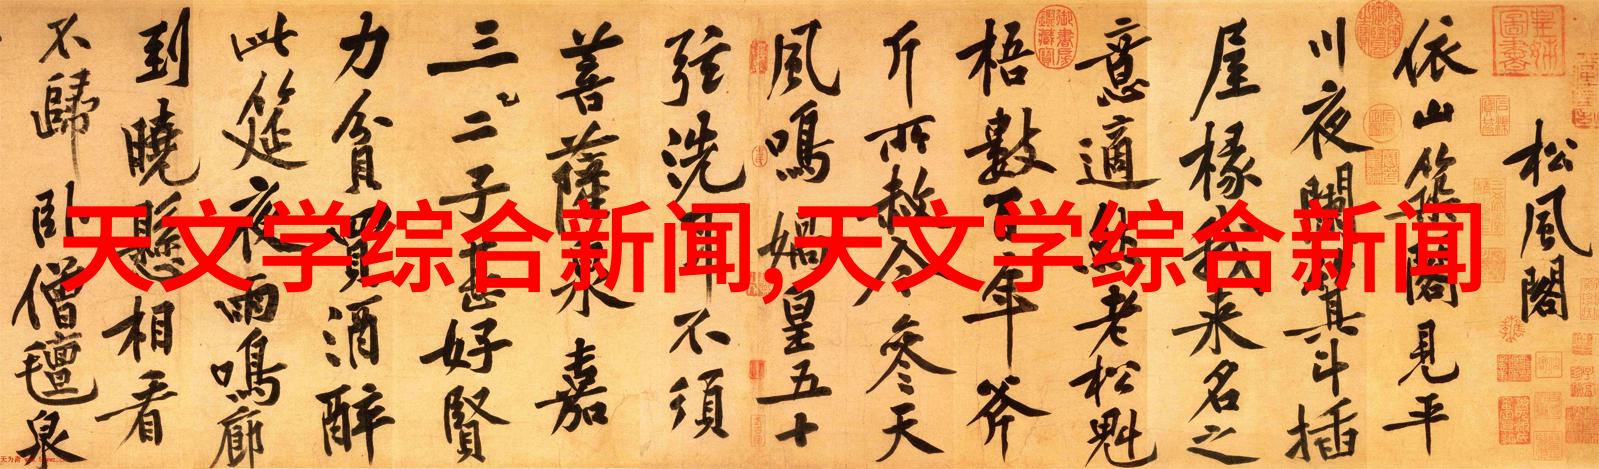 松風閣
依山築閣見平
川夜闌箕斗插
屋椽我來名之
意適然老松魁
梧數百年斧
斤所赦今參天
風鳴媧皇五十
弦洗耳不須
菩薩泉嘉
三二子甚好賢
力貧買酒醉
此筵夜雨鳴廊
到曉懸相看
不歸臥僧氈泉
天文学综合新闻,天文学综合新闻